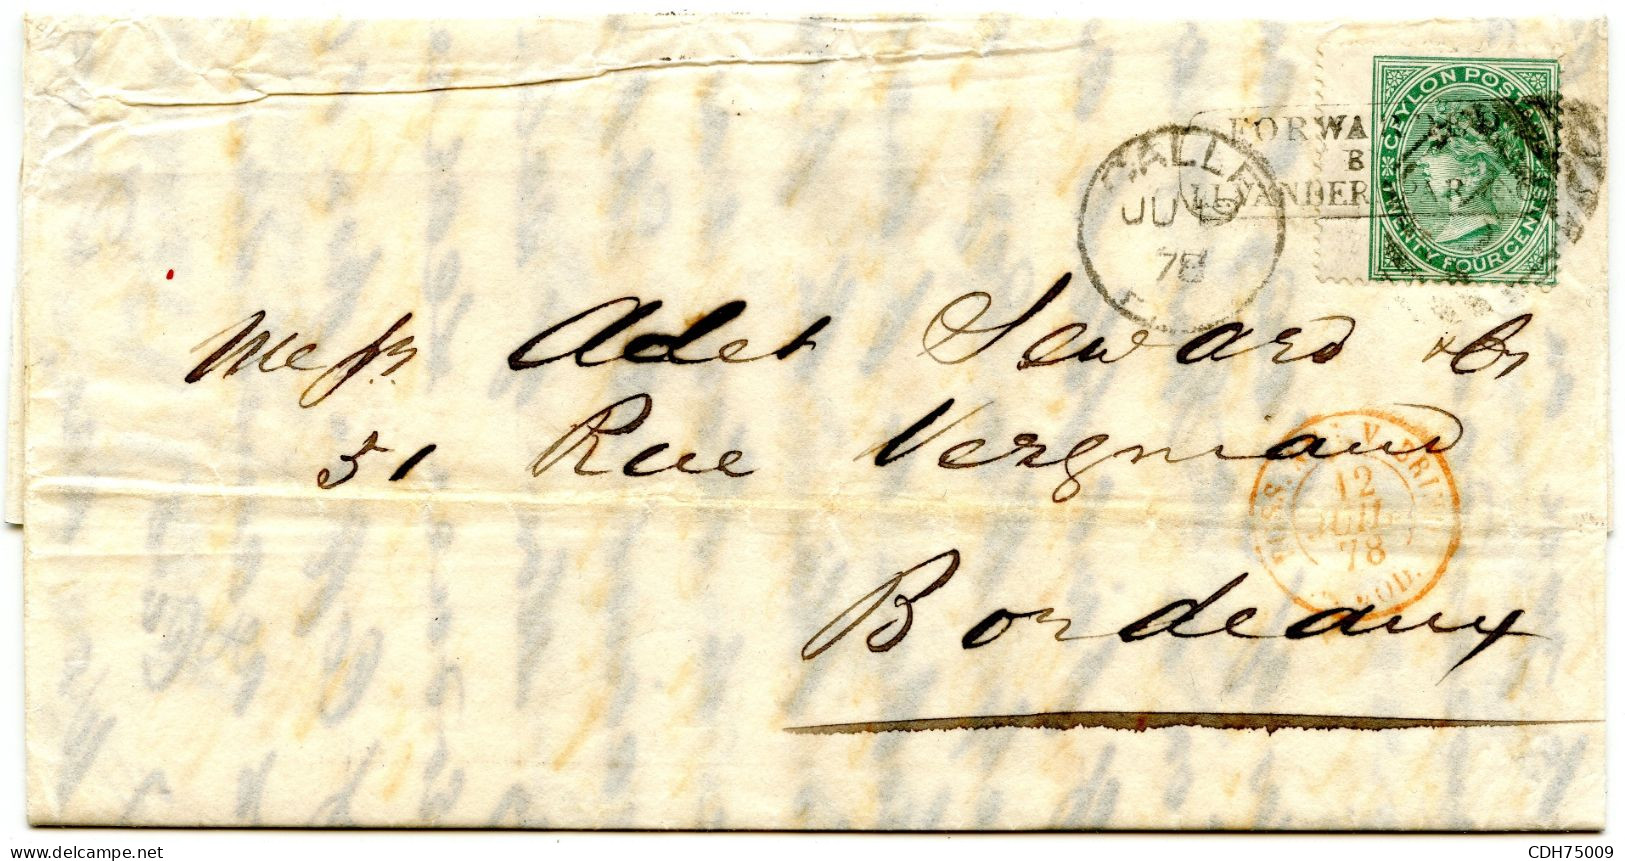 CEYLON POSTAGE
TWENTY FOUR CENTS
FORWARDED
B
VANDER
GALLE
JU
78
Messrs Adet Seward & Co
51 Rue Vergniaud
Bordeaux
POSS. AN. V. BRIND.
12
JUIL
78
MOD.
delcampe.net
CDH75009